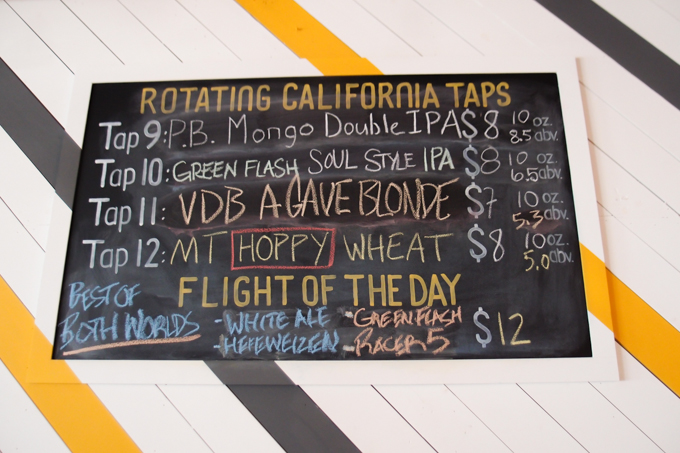 ROTATING CALIFORNIA TAPS
Tap 9: P.B. Mongo Double IPA $8 10 oz. 8.5 abv.
Tap 10: GREEN FLASH SOUL STYLE IPA $8 10 oz. 6.5 abv.
Tap 11: VDB AGAVE BLONDE $7 10 oz. 5.3 abv.
Tap 12: MT HOPPY WHEAT $8 10 oz. 5.0 abv.
FLIGHT OF THE DAY
BEST OF BOTH WORLDS
- WHITE ALE - GREEN FLASH
- HEFEWEIZEN - RACER 5
$12